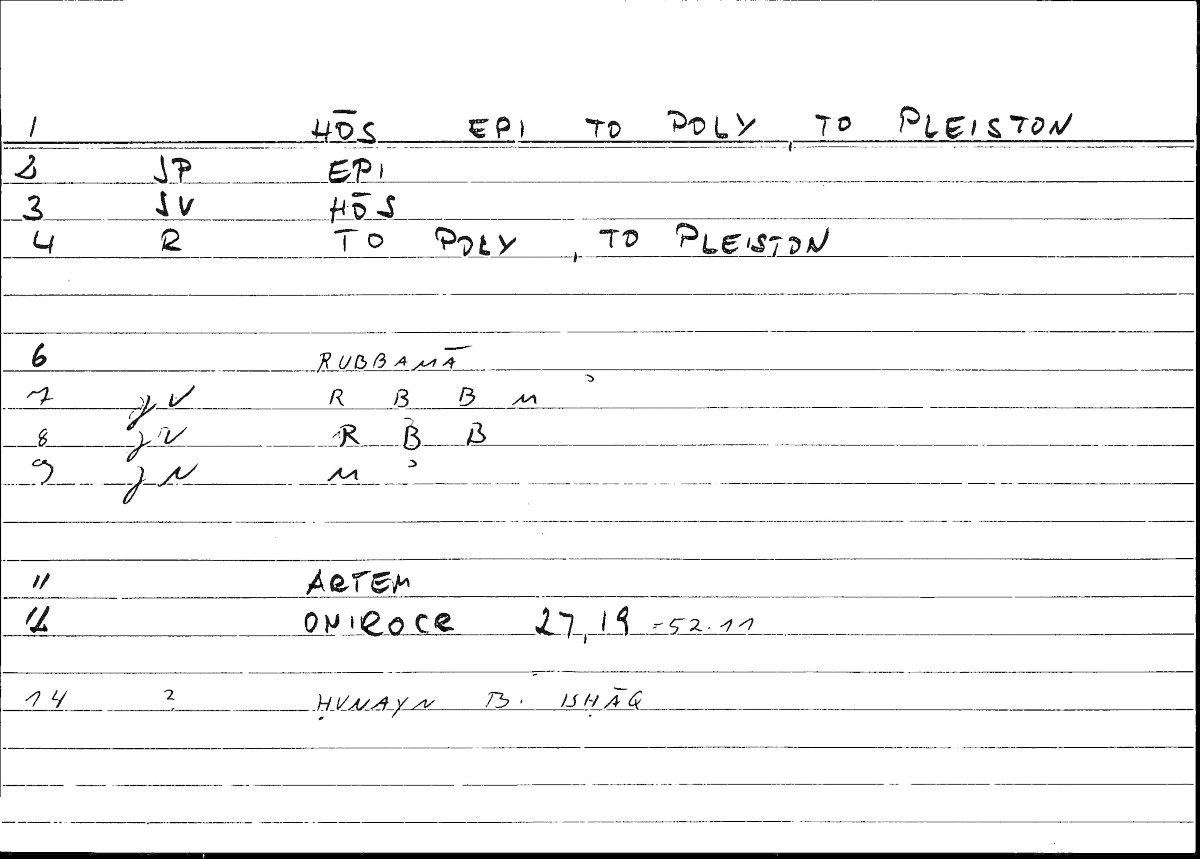 1 HŌS EPI TO POLY, TO PLEISTON
2 SP EPI
3 SV HŌS
4 R TO POLY, TO PLEISTON
6 RUBBAMĀ
7 gV R B B M ʾ
8 gV R B B
9 gN M ʾ
11 ARTEM
12 ONIROCR 27,19 =52.11
14 ? ḤUNAYN B. ISḤĀQ